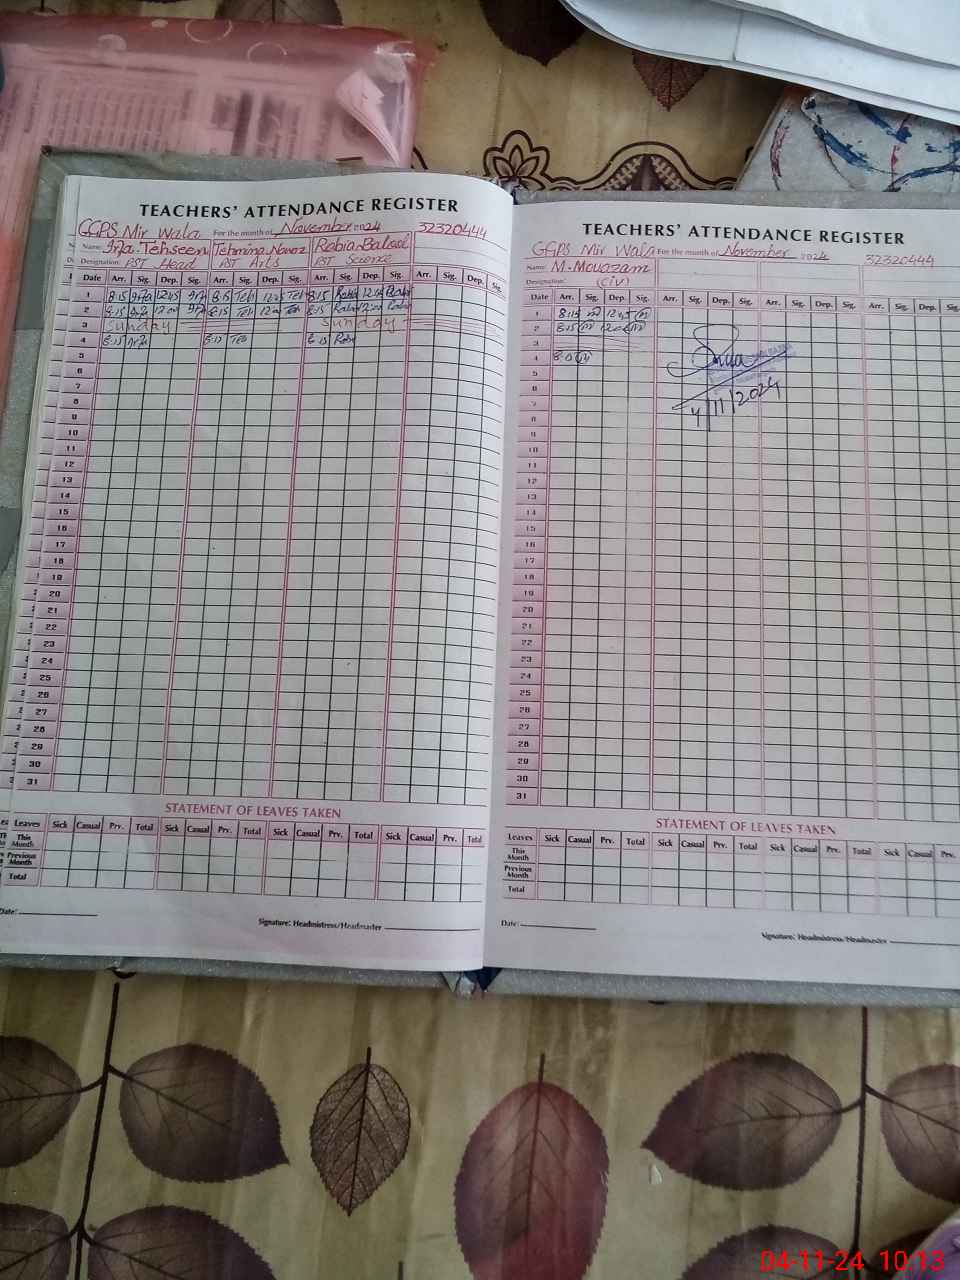 TEACHERS' ATTENDANCE REGISTER
GGPS Mir Wala For the month of November 2024 32320444
Name: Irfa Tehseen Tehmina Nawaz Robia Batool
Designation: PST Head PST Arts PST Science
Date Arr. Sig. Dep. Sig. Arr. Sig. Dep. Sig. Arr. Sig. Dep. Sig. Arr. Sig. Dep. Sig.
1 8:15 Irfa 12:45 Irfa 8:15 Teh 12:45 Teh 8:15 Robia 12:45 Robia
2 8:15 Irfa 12:00 Irfa 8:15 Teh 12:00 Teh 8:15 Robia 12:00 Robia
3 Sunday Sunday
4 8:15 Irfa 8:15 Teh 8:15 Robia
5
6
7
8
9
10
11
12
13
14
15
16
17
18
19
20
21
22
23
24
25
26
27
28
29
30
31
STATEMENT OF LEAVES TAKEN
Leaves Sick Casual Prv. Total Sick Casual Prv. Total Sick Casual Prv. Total Sick Casual Prv. Total
This Month
Previous Month
Total
Date:
Signature: Headmistress/Headmaster
TEACHERS' ATTENDANCE REGISTER
GGPS Mir Wala For the month of November 2024 32320444
Name: M. Mouazam
Designation: (civ)
Date Arr. Sig. Dep. Sig. Arr. Sig. Dep. Sig. Arr. Sig. Dep. Sig. Arr. Sig. Dep. Sig.
1 8:15 M 12:45 M
2 8:15 M 12:00 M
3
4 8:15 M
4/11/2024
5
6
7
8
9
10
11
12
13
14
15
16
17
18
19
20
21
22
23
24
25
26
27
28
29
30
31
STATEMENT OF LEAVES TAKEN
Leaves Sick Casual Prv. Total Sick Casual Prv. Total Sick Casual Prv. Total Sick Casual Prv.
This Month
Previous Month
Total
Date:
Signature: Headmistress/Headmaster
04-11-24 10:13